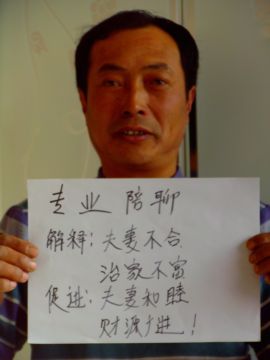 专业陪聊
解释：夫妻不合
治家不富
促进：夫妻和睦
财源大进！